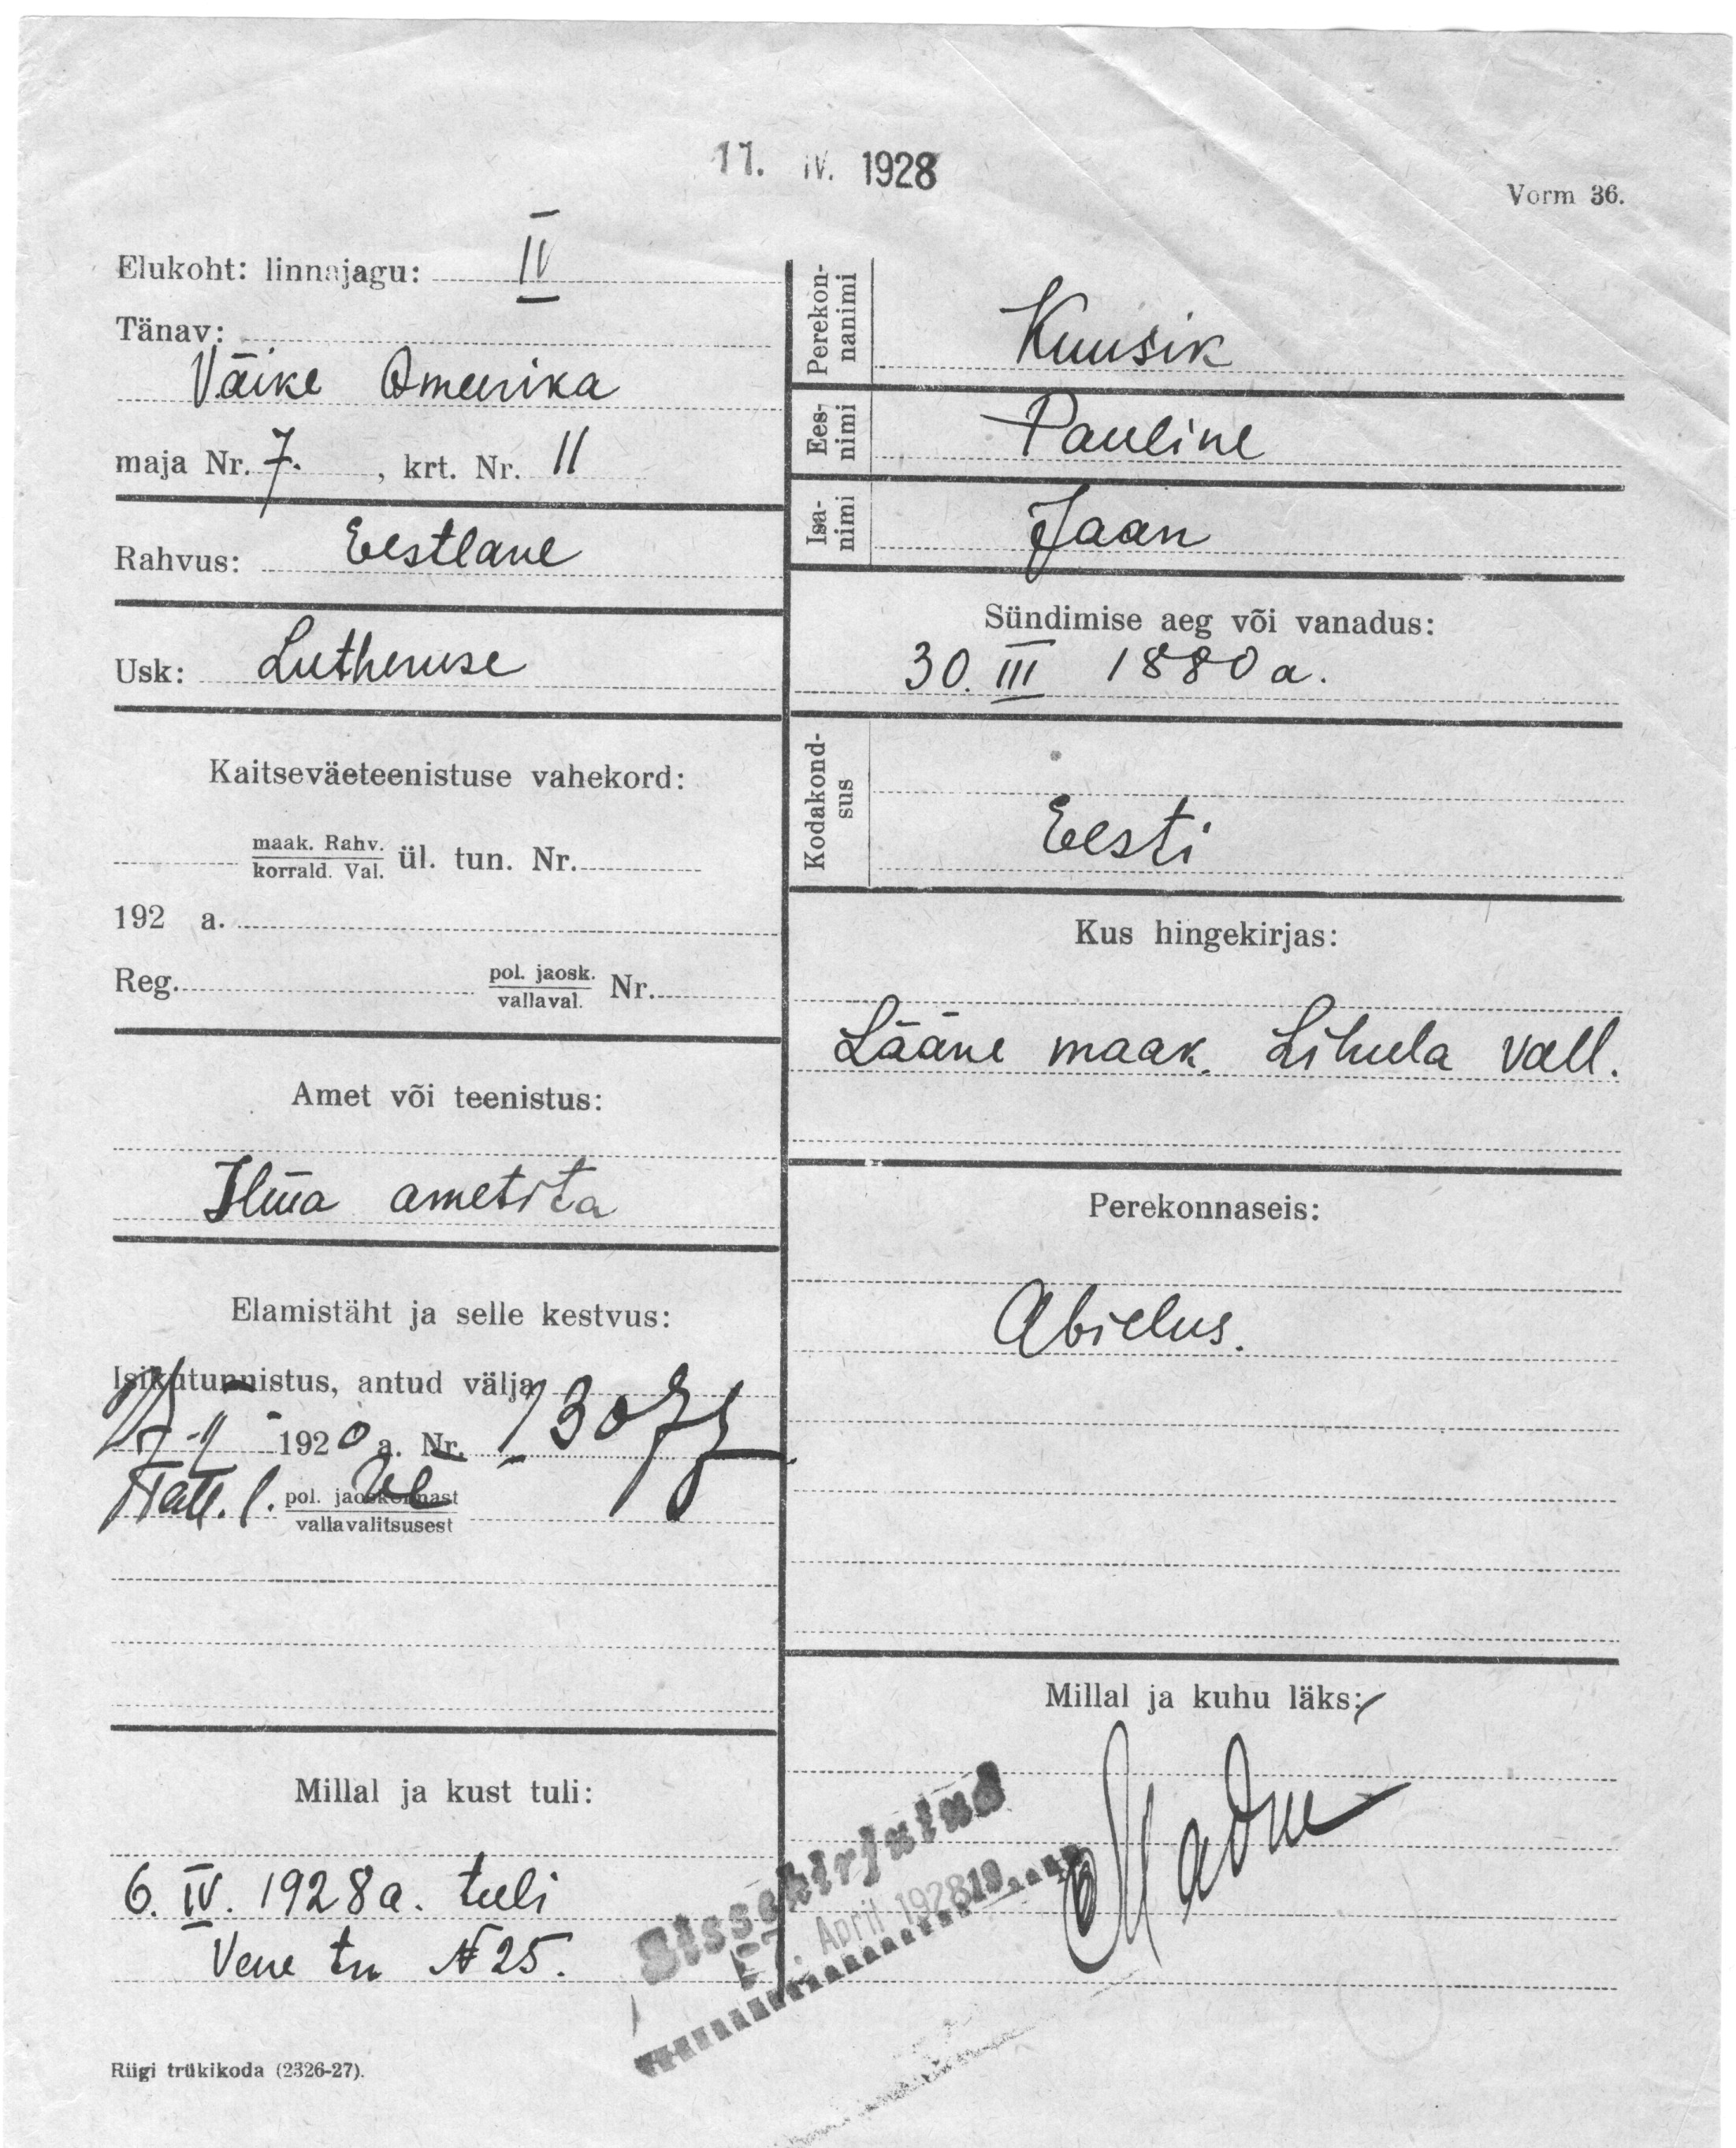 11. IV. 1928
Vorm 36.
Elukoht: linnajagu: IV
Tänav:
Väike Ameerika
maja Nr. 7. , krt. Nr. 11
Rahvus: Eestlane
Usk: Lutheruse
Kaitseväeteenistuse vahekord:
maak. Rahv.
korrald. Val. ül. tun. Nr.
192 a.
Reg. pol. jaosk.
vallaval. Nr.
Amet või teenistus:
Ilma ametita
Elamistäht ja selle kestvus:
Isikutunnistus, antud välja
1920 a. Nr.
Tall. l. pol. jaoskonnast
vallavalitsusest
Millal ja kust tuli:
6. IV. 1928 a. tuli
Vene tn № 25.
Riigi trükikoda (2326-27).
Perekon-
nanimi
Kuusik
Ees-
nimi
Pauline
Isa-
nimi
Jaan
Sündimise aeg või vanadus:
30. III 1880 a.
Kodakond-
sus
Eesti
Kus hingekirjas:
Lääne maak. Lihula vall.
Perekonnaseis:
Abielus.
Millal ja kuhu läks:
Sissekirjutud
April 1928 19